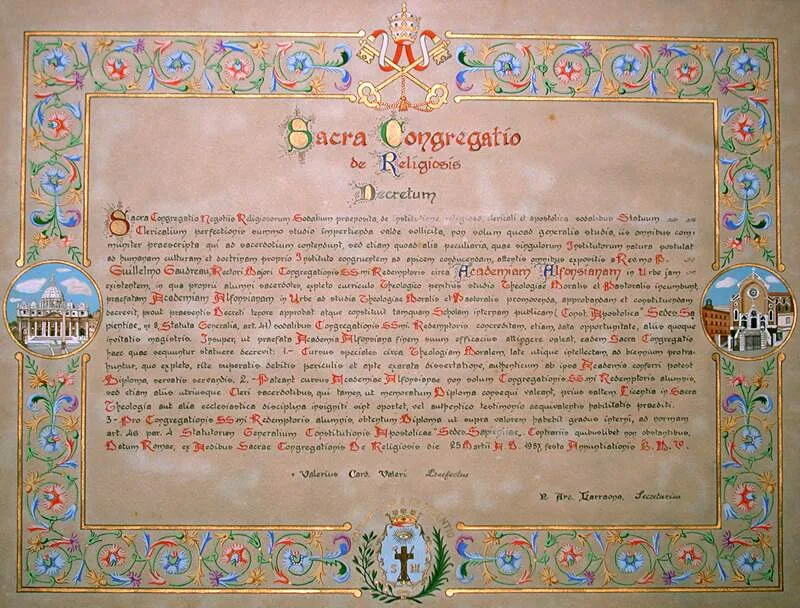 Sacra Congregatio
de Religiosis
Decretum
Sacra Congregatio Negotiis Religiosorum Sodalium praeposita, de institutione religiosa, clericali et apostolica sodalibus Statuum
Clericalium perfectionis summo studio impertienda valde sollicita, non solum quoad generalia studia, iis omnibus com-
muniter praescripta qui ad sacerdotium contendunt, sed etiam quoad alia peculiaria, quae singulorum Institutorum natura postulat
ad humanam culturam et doctrinam proprio Instituto congruentem ad apicem conducendam, attentis omnibus expositis a Rev.mo P.
Guillelmo Gaudreau, Rectori Majori Congregationis SS.mi Redemptoris circa Academiam Alfonsianam in Urbe jam
existentem, in qua proprii alumni sacerdotes, expleto curriculo Theologico penitius studio Theologiae Moralis et Pastoralis incumbunt,
praefatam Academiam Alfonsianam in Urbe ad studia Theologiae Moralis et Pastoralis promovenda, approbandam et constituendam
decrevit, prout praesentis Decreti tenore approbat atque constituit tamquam Scholam internam publicam (Const. Apostolica "Sedes Sa-
pientiae, nr 8, Statuta Generalia, art. 41) sodalibus Congregationis SS.mi Redemptoris concreditam, etiam, data opportunitate, aliis quoque
invitatis magistris. Insuper, ut praefata Academia Alfonsiana finem suum efficacius attingere valeat, eadem Sacra Congregatio
haec quae sequuntur statuere decrevit: 1.- Cursus speciales circa Theologiam Moralem, late utique intellectam, ad biennium protra-
huntur, quo expleto, rite superatis debitis periculis et apte exarata dissertatione, authenticum ab ipsa Academia conferri potest
Diploma, servatis servandis. 2.- Pateant cursus Academiae Alfonsianae non solum Congregationis SS.mi Redemptoris alumnis,
sed etiam aliis utriusque Cleri sacerdotibus, qui tamen, ut memoratum Diploma consequi valeant, prius saltem Licentia in Sacra
Theologia aut alia ecclesiastica disciplina insigniti sint oportet, vel authentico testimonio aequivalentis habilitatis praediti.
3.- Pro Congregationis SS.mi Redemptoris alumnis, obtentum Diploma ut supra valorem habebit gradus interni, ad normam
art. 46 par. 4 Statutorum Generalium Constitutioni Apostolicae "Sedes Sapientiae". Contrariis quibuslibet non obstantibus.
Datum Romae, ex Aedibus Sacrae Congregationis De Religiosis die 25 Martii A.D. 1957, festo Annuntiationis B.M.V.
Valerius Card. Valeri Praefectus
Arc. Larraona, Secretarius